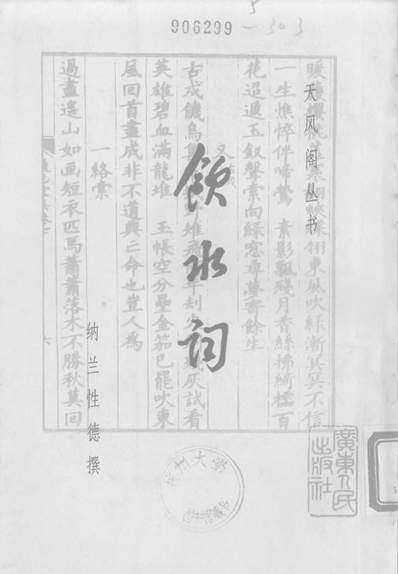 5
-303
906299
天风阁丛书
饮水词
纳兰性德撰
廣東人民
出版社
東風吹綠漸冥冥不信
一生憔悴伴啼鶯 素影飄殘月香絲拂綺櫺百
花迢遞玉釵聲索向綠窗尋夢寄餘生
又
古戍饑烏集 灰試看
英雄碧血滿龍堆 玉帳空分壘金笳已罷吹東
風回首盡成非不道興亡命也豈人為
一絡索
過盡遙山如畫短衣匹馬蕭蕭落木不勝秋莫回